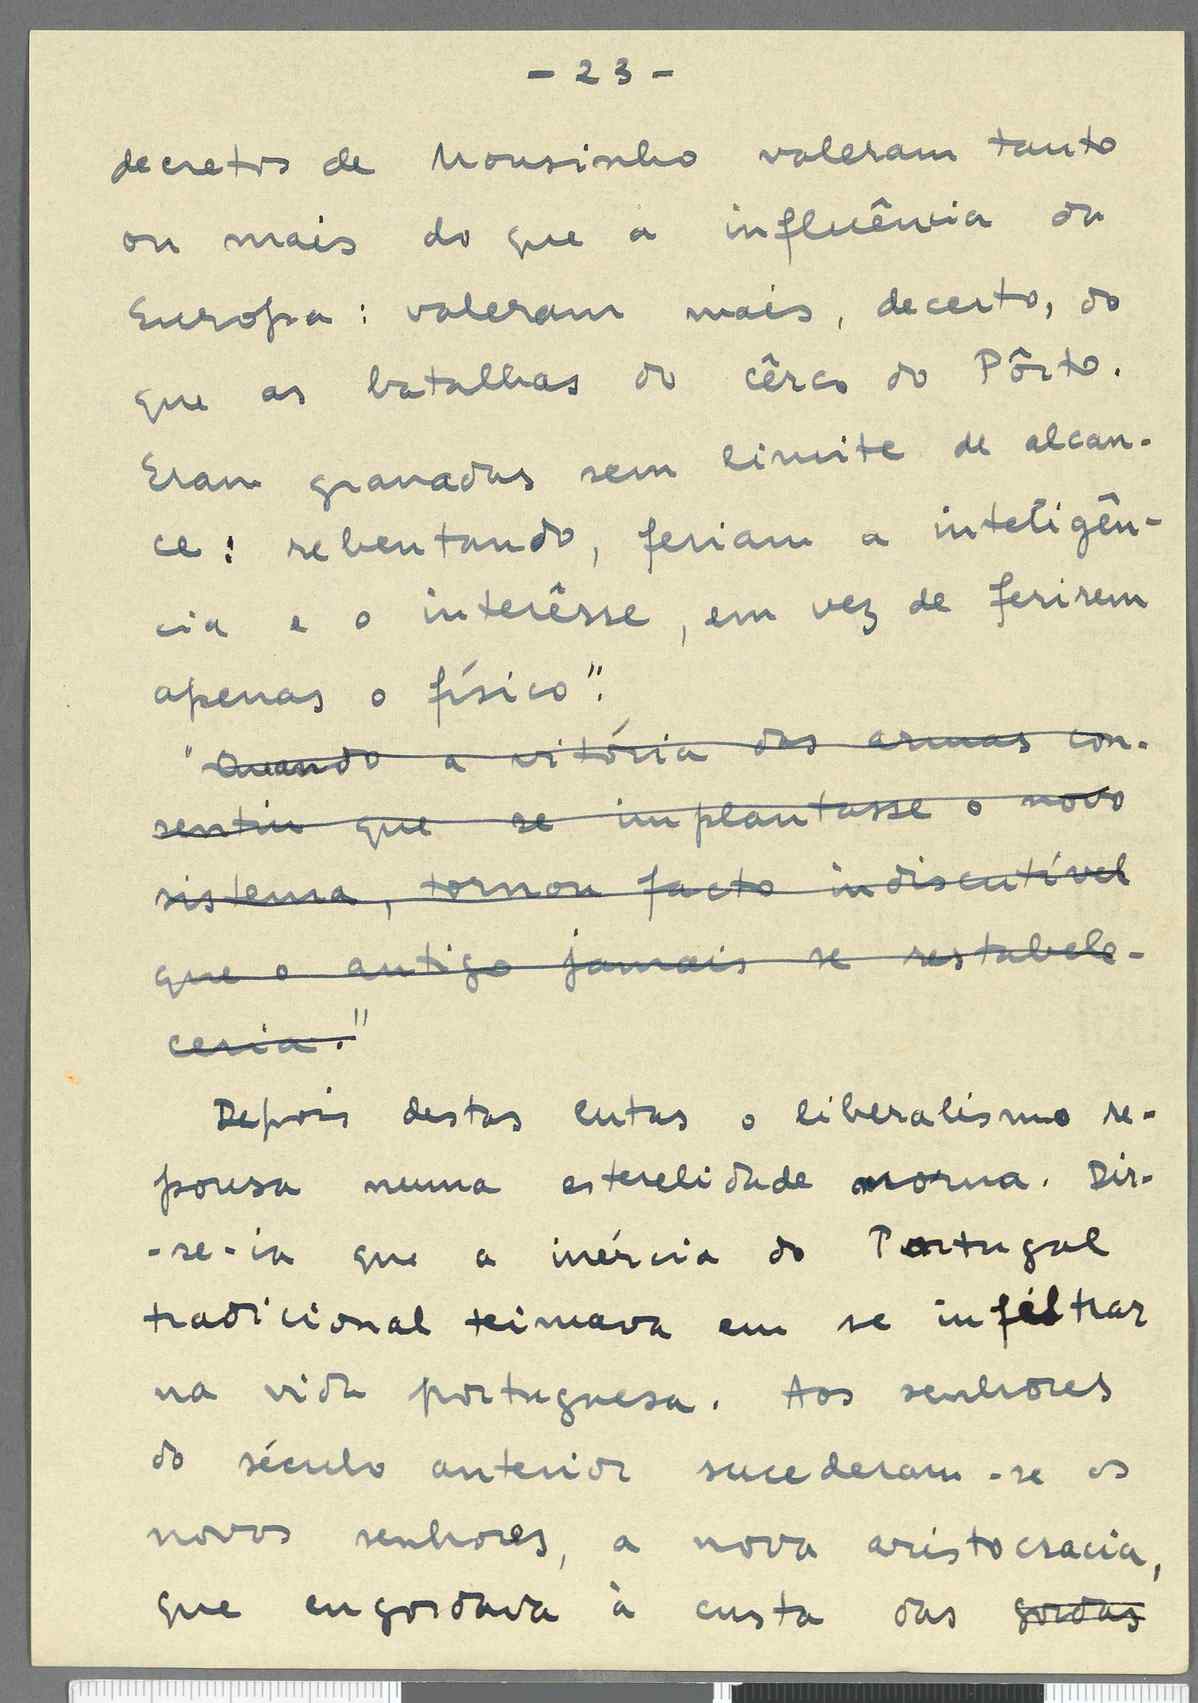 - 23 -
decretos de Mousinho valeram tanto
ou mais do que a influência da
Europa : valeram mais, decerto, do
que as batalhas do cêrco do Pôrto.
Eram granadas sem limite de alcan-
ce: rebentando, feriam a inteligên-
cia e o interêsse, em vez de ferirem
apenas o físico".
"Quando a vitória das armas con-
sentiu que se implantasse o novo
sistema, tornou facto indiscutível
que o antigo jamais se restabele-
ceria."
Depois destas lutas o liberalismo re-
pousa numa esterelidade morna. Dir-
-se-ia que a inércia do Portugal
tradicional teimava em se infiltrar
na vida portuguesa. Aos senhores
do século anterior sucederam-se os
novos senhores, a nova aristocracia,
que engordava à custa das gordas